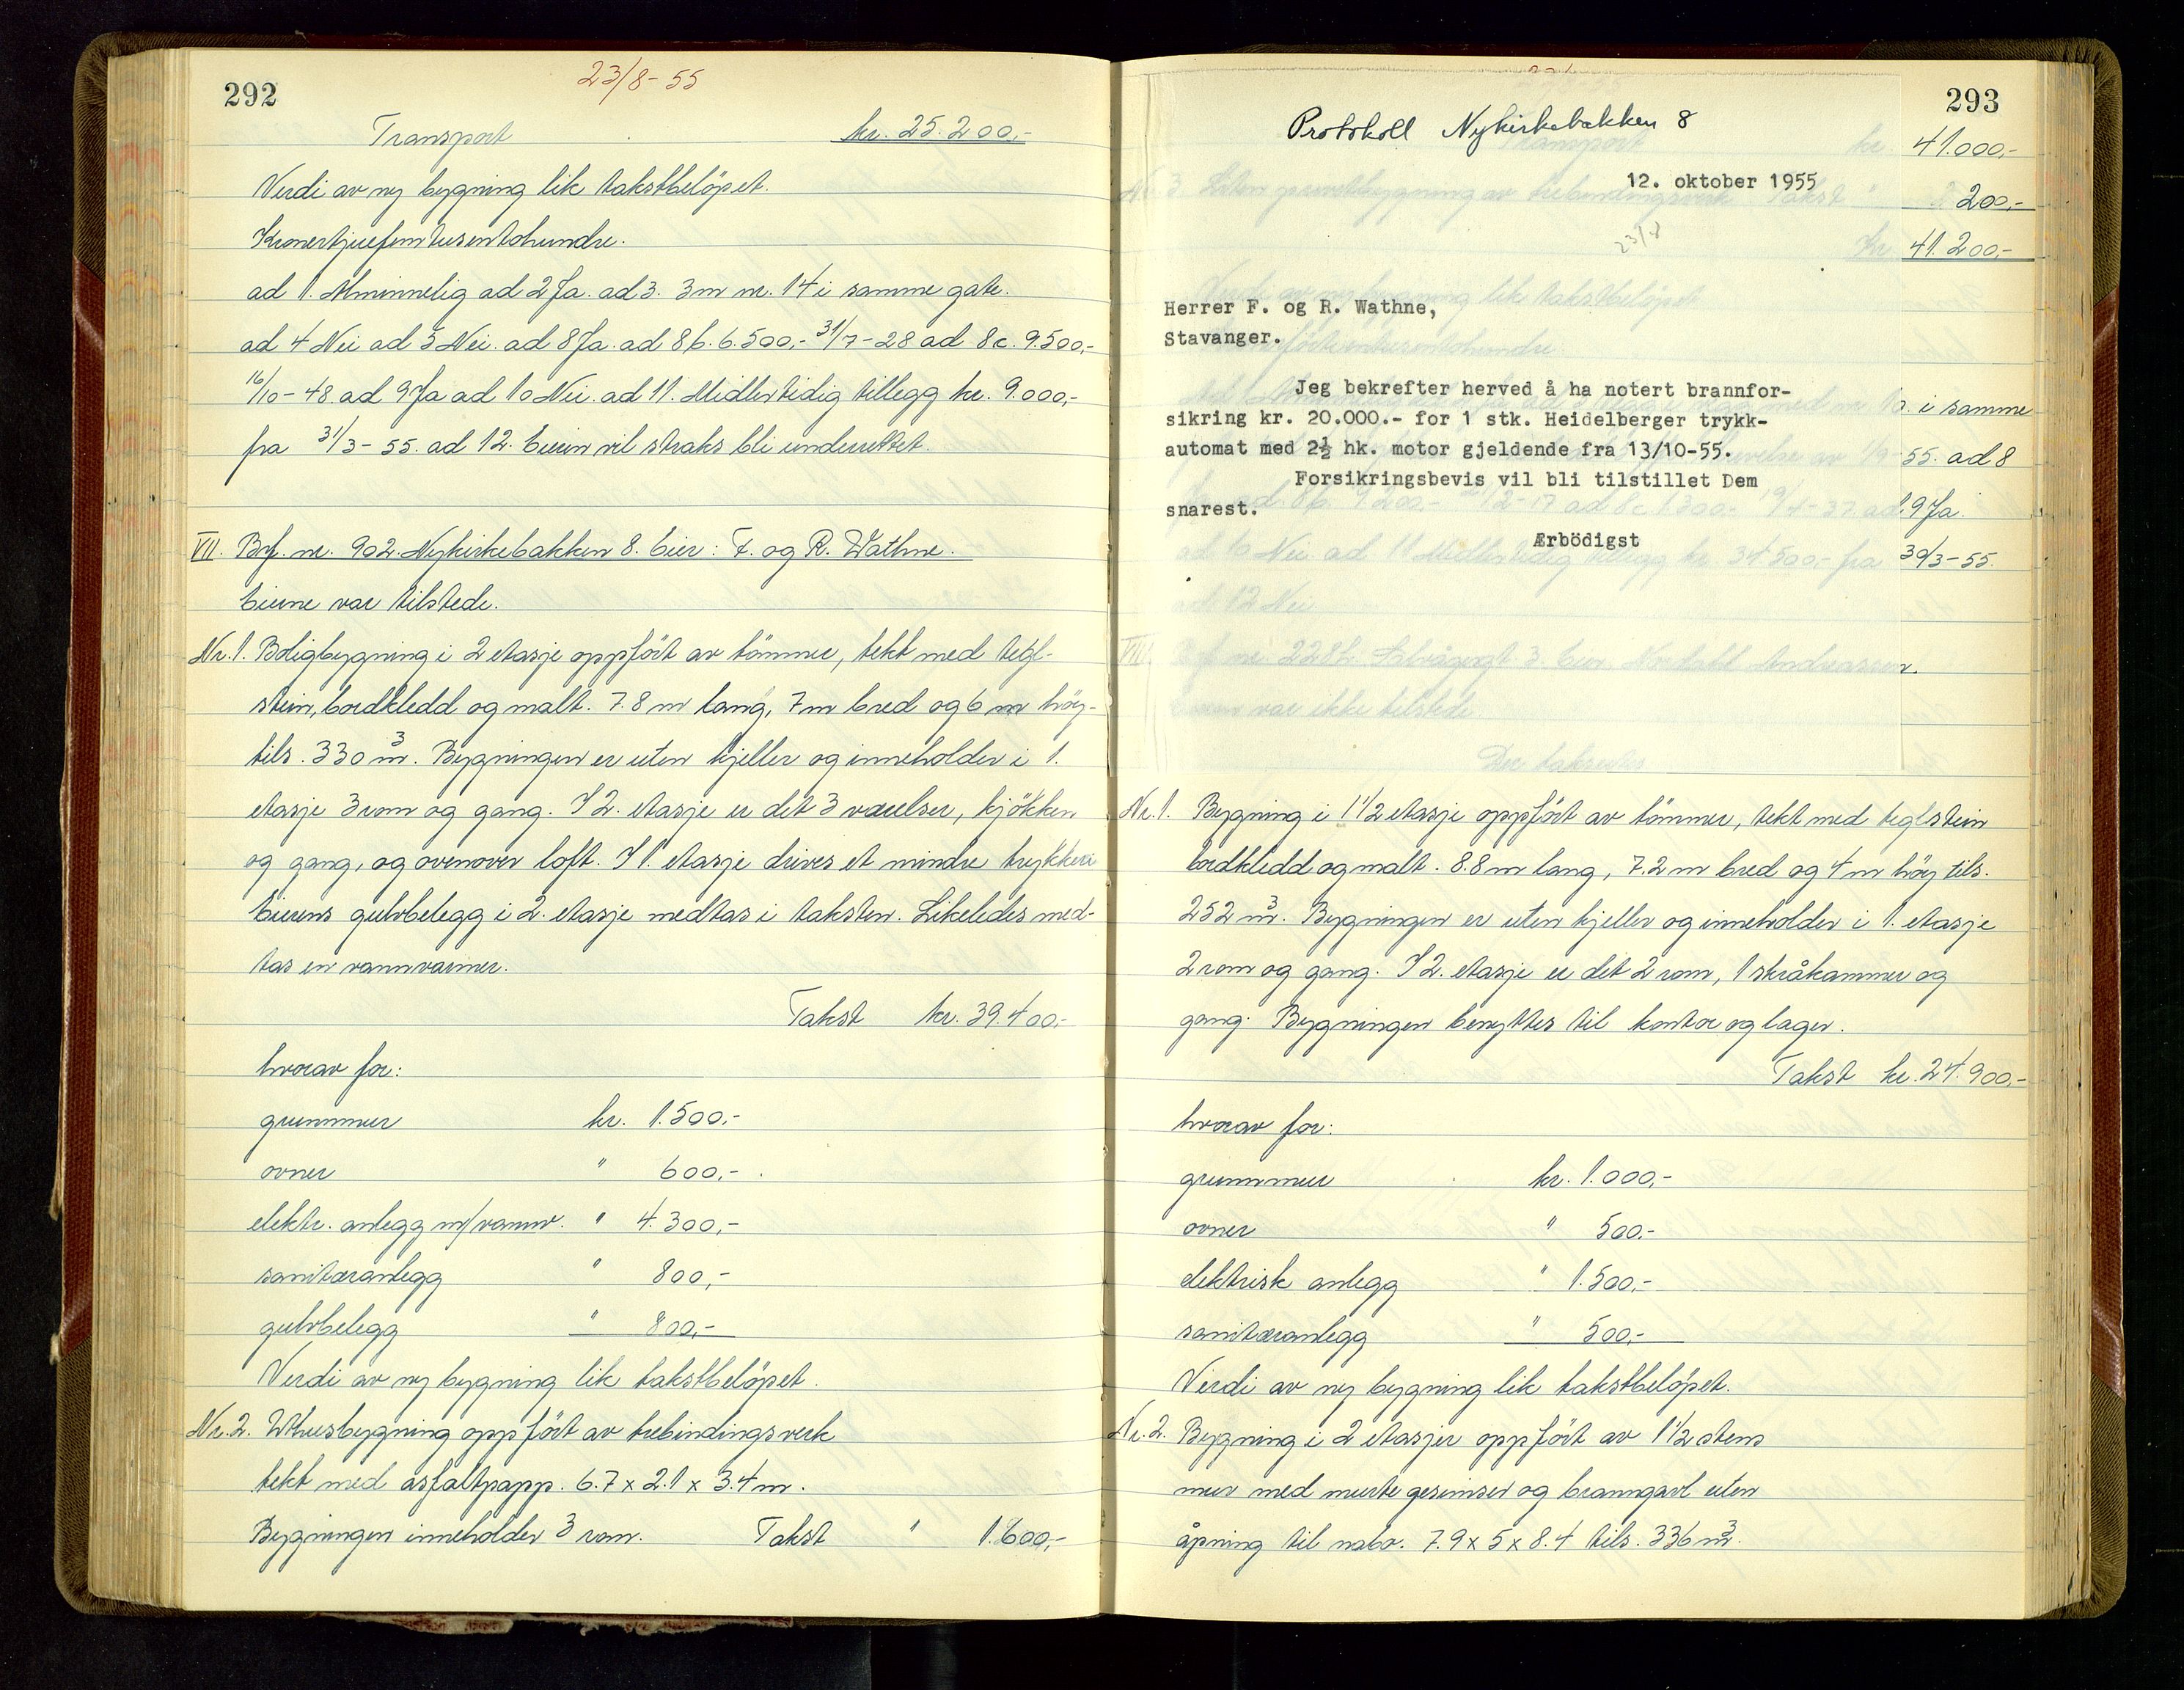 292
23/8-55
Transport kr. 25.200,-
Verdi av ny bygning lik takstbelöpet.
Kronertjuefemtusentohundre.
ad 1. Alminnelig ad 2 Ja. ad 3. 3m nr. 14 i samme gate.
ad 4 Nei ad 5 Nei. ad 8 Ja. ad 8 b. 6.500,- 31/7-28 ad 8c. 9.500,-
16/10-48. ad 9 Ja ad 10 Nei. ad 11. Midlertidig tillegg kr. 9.000,-
fra 31/3-55. ad 12. Eieren vil straks bli underrettet.
VII. Brf. nr. 902. Nykirkebakken 8. Eier: F. og R. Wathne.
Eierne var tilstede.
Nr. 1. Boligbygning i 2 etasje oppfört av tömmer, tekt med tegl-
stein, bordkledd og malt. 7.8 m lang, 7m bred og 6 m höy-
tils. 330 m3. Bygningen er uten kjeller og inneholder i 1.
etasje 3 rom og gang. I 2. etasje er det 3 værelser, kjökken
og gang, og ovenover loft. I 1. etasje drives et mindre trykkeri
Eierens gulvbelegg i 2. etasje medtas i taksten. Likeledes med-
tas en vannvarmer.
Takst kr. 39.400,-
hvorav for:
grunnmur kr. 1.500,-
ovner " 600,-
elektr. anlegg m/vannv. " 4.300,-
sanitæranlegg " 800,-
gulvbelegg " 800,-
Verdi av ny bygning lik takstbelöpet.
Nr. 2. Uthusbygning oppfört av trebindingsverk
tekt med asfaltpapp. 6.7 x 2.1 x 3.4 m.
Bygningen inneholder 3 rom. Takst " 1.600,-
293
Protokoll Nykirkebakken 8
41.000,-
12. oktober 1955
200,-
23/8
41.200,-
Herrer F. og R. Wathne,
Stavanger.
Jeg bekrefter herved å ha notert brannfor-
sikring kr. 20.000.- for 1 stk. Heidelberger trykk-
automat med 2½ hk. motor gjeldende fra 13/10-55.
Forsikringsbevis vil bli tilstillet Dem
snarest.
Ærbödigst
i samme
55. ad 8
9 Ja.
30/3-55.
Nr. 1. Bygning i 1 1/2 etasje oppfört av tömmer, tekt med teglstein
bordkledd og malt. 8.8 m lang, 7.2 m bred og 4 m höy tils.
252 m3. Bygningen er uten kjeller og inneholder i 1. etasje
2 rom og gang. I 2. etasje er det 2 rom, 1 skråkammer og
gang. Bygningen benyttes til kontor og lager.
Takst kr. 24.900,-
hvorav for:
grunnmur kr. 1.000,-
ovner " 500.-
elektrisk anlegg " 1.500,-
sanitæranlegg " 500,-
Verdi av ny bygning lik takstbelöpet.
Nr. 2. Bygning i 2 etasjer oppfört av 1 1/2 stens
mur med murte gesimser og branngavl uten
åpning til nabo. 7.9 x 5 x 8.4 tils. 336 m3.